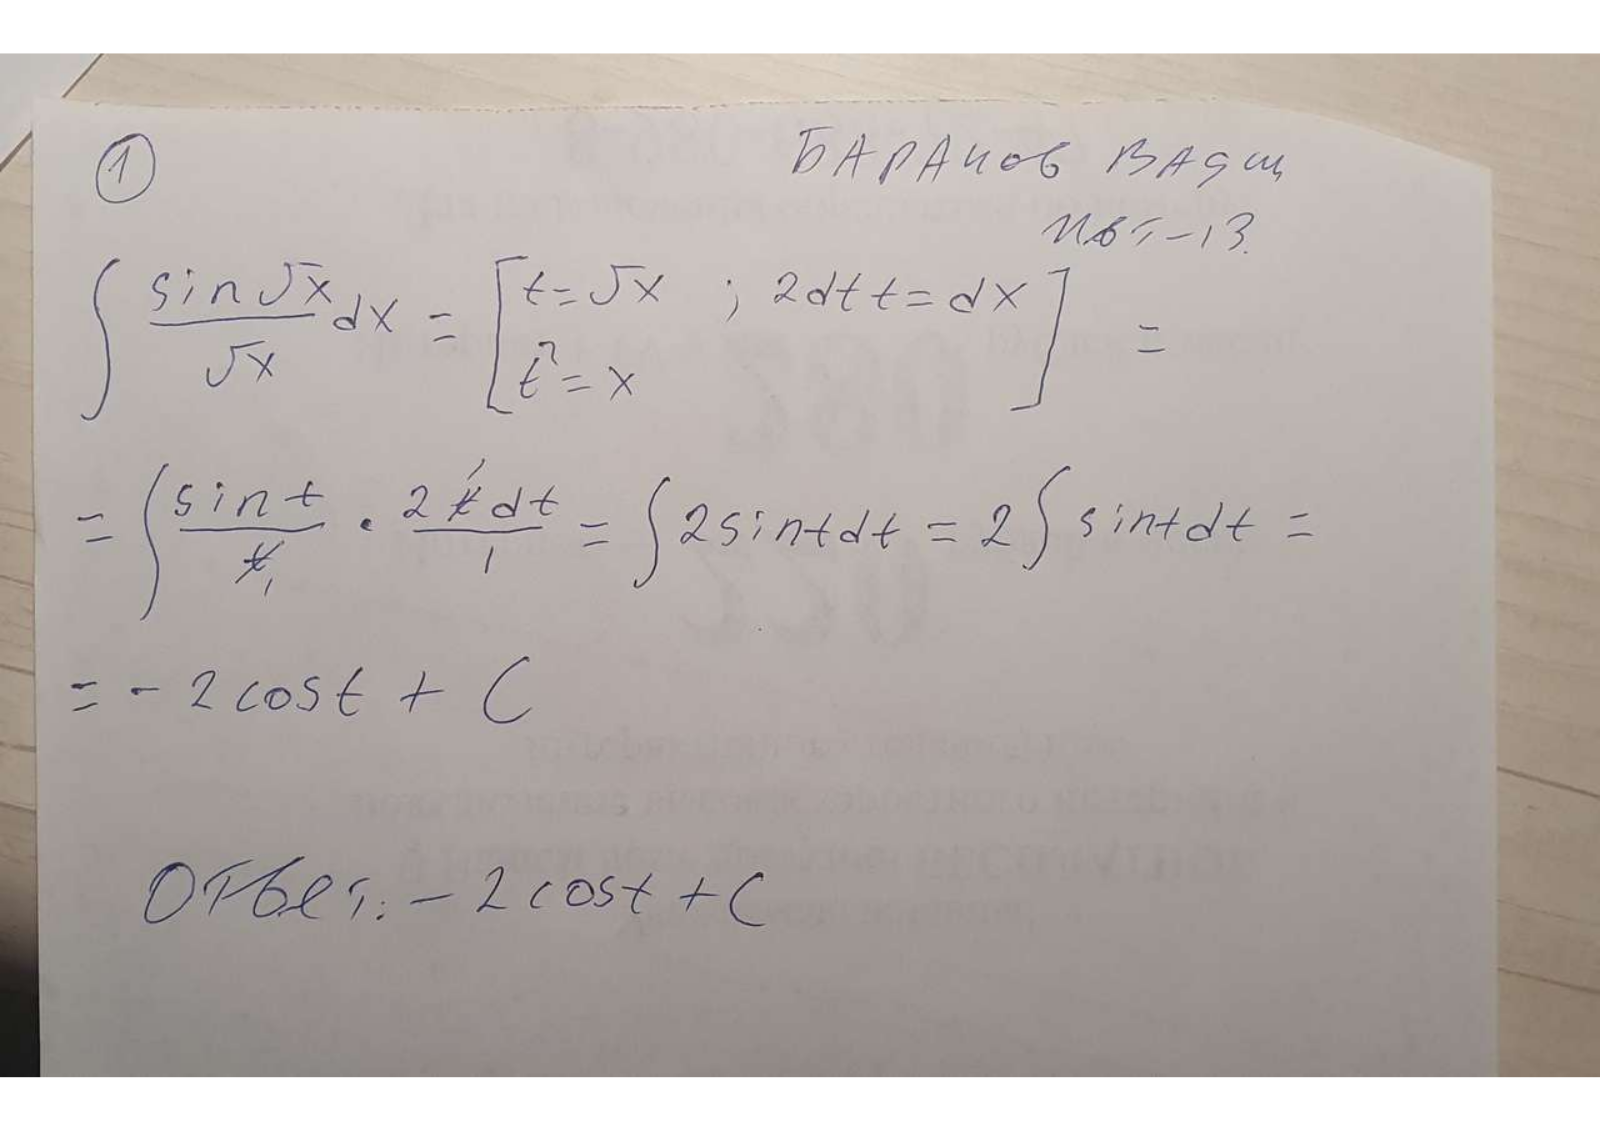 1
БАРАНОВ ВАДИМ
ИВТ-13.
∫ sin√x/√x dx = [t=√x ; 2dt t = dx
t²=x] =
= ∫ sin t/t₁ · 2t dt/1 = ∫ 2 sin t dt = 2 ∫ sin t dt =
= - 2 cos t + C
Ответ: - 2 cos t + C